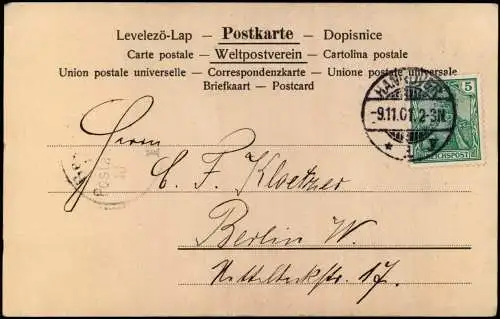 Levelezö-Lap — Postkarte — Dopisnice
Carte postale — Weltpostverein — Cartolina postale
Union postale universelle — Correspondenzkarte — Unione postale universale
Briefkaart — Postcard
5
HANNOVER
-9.11.01. 2-3N.
REICHSPOST
Herrn
C. F. Kloetzner
Berlin W.
Nettelbeckstr. 17.